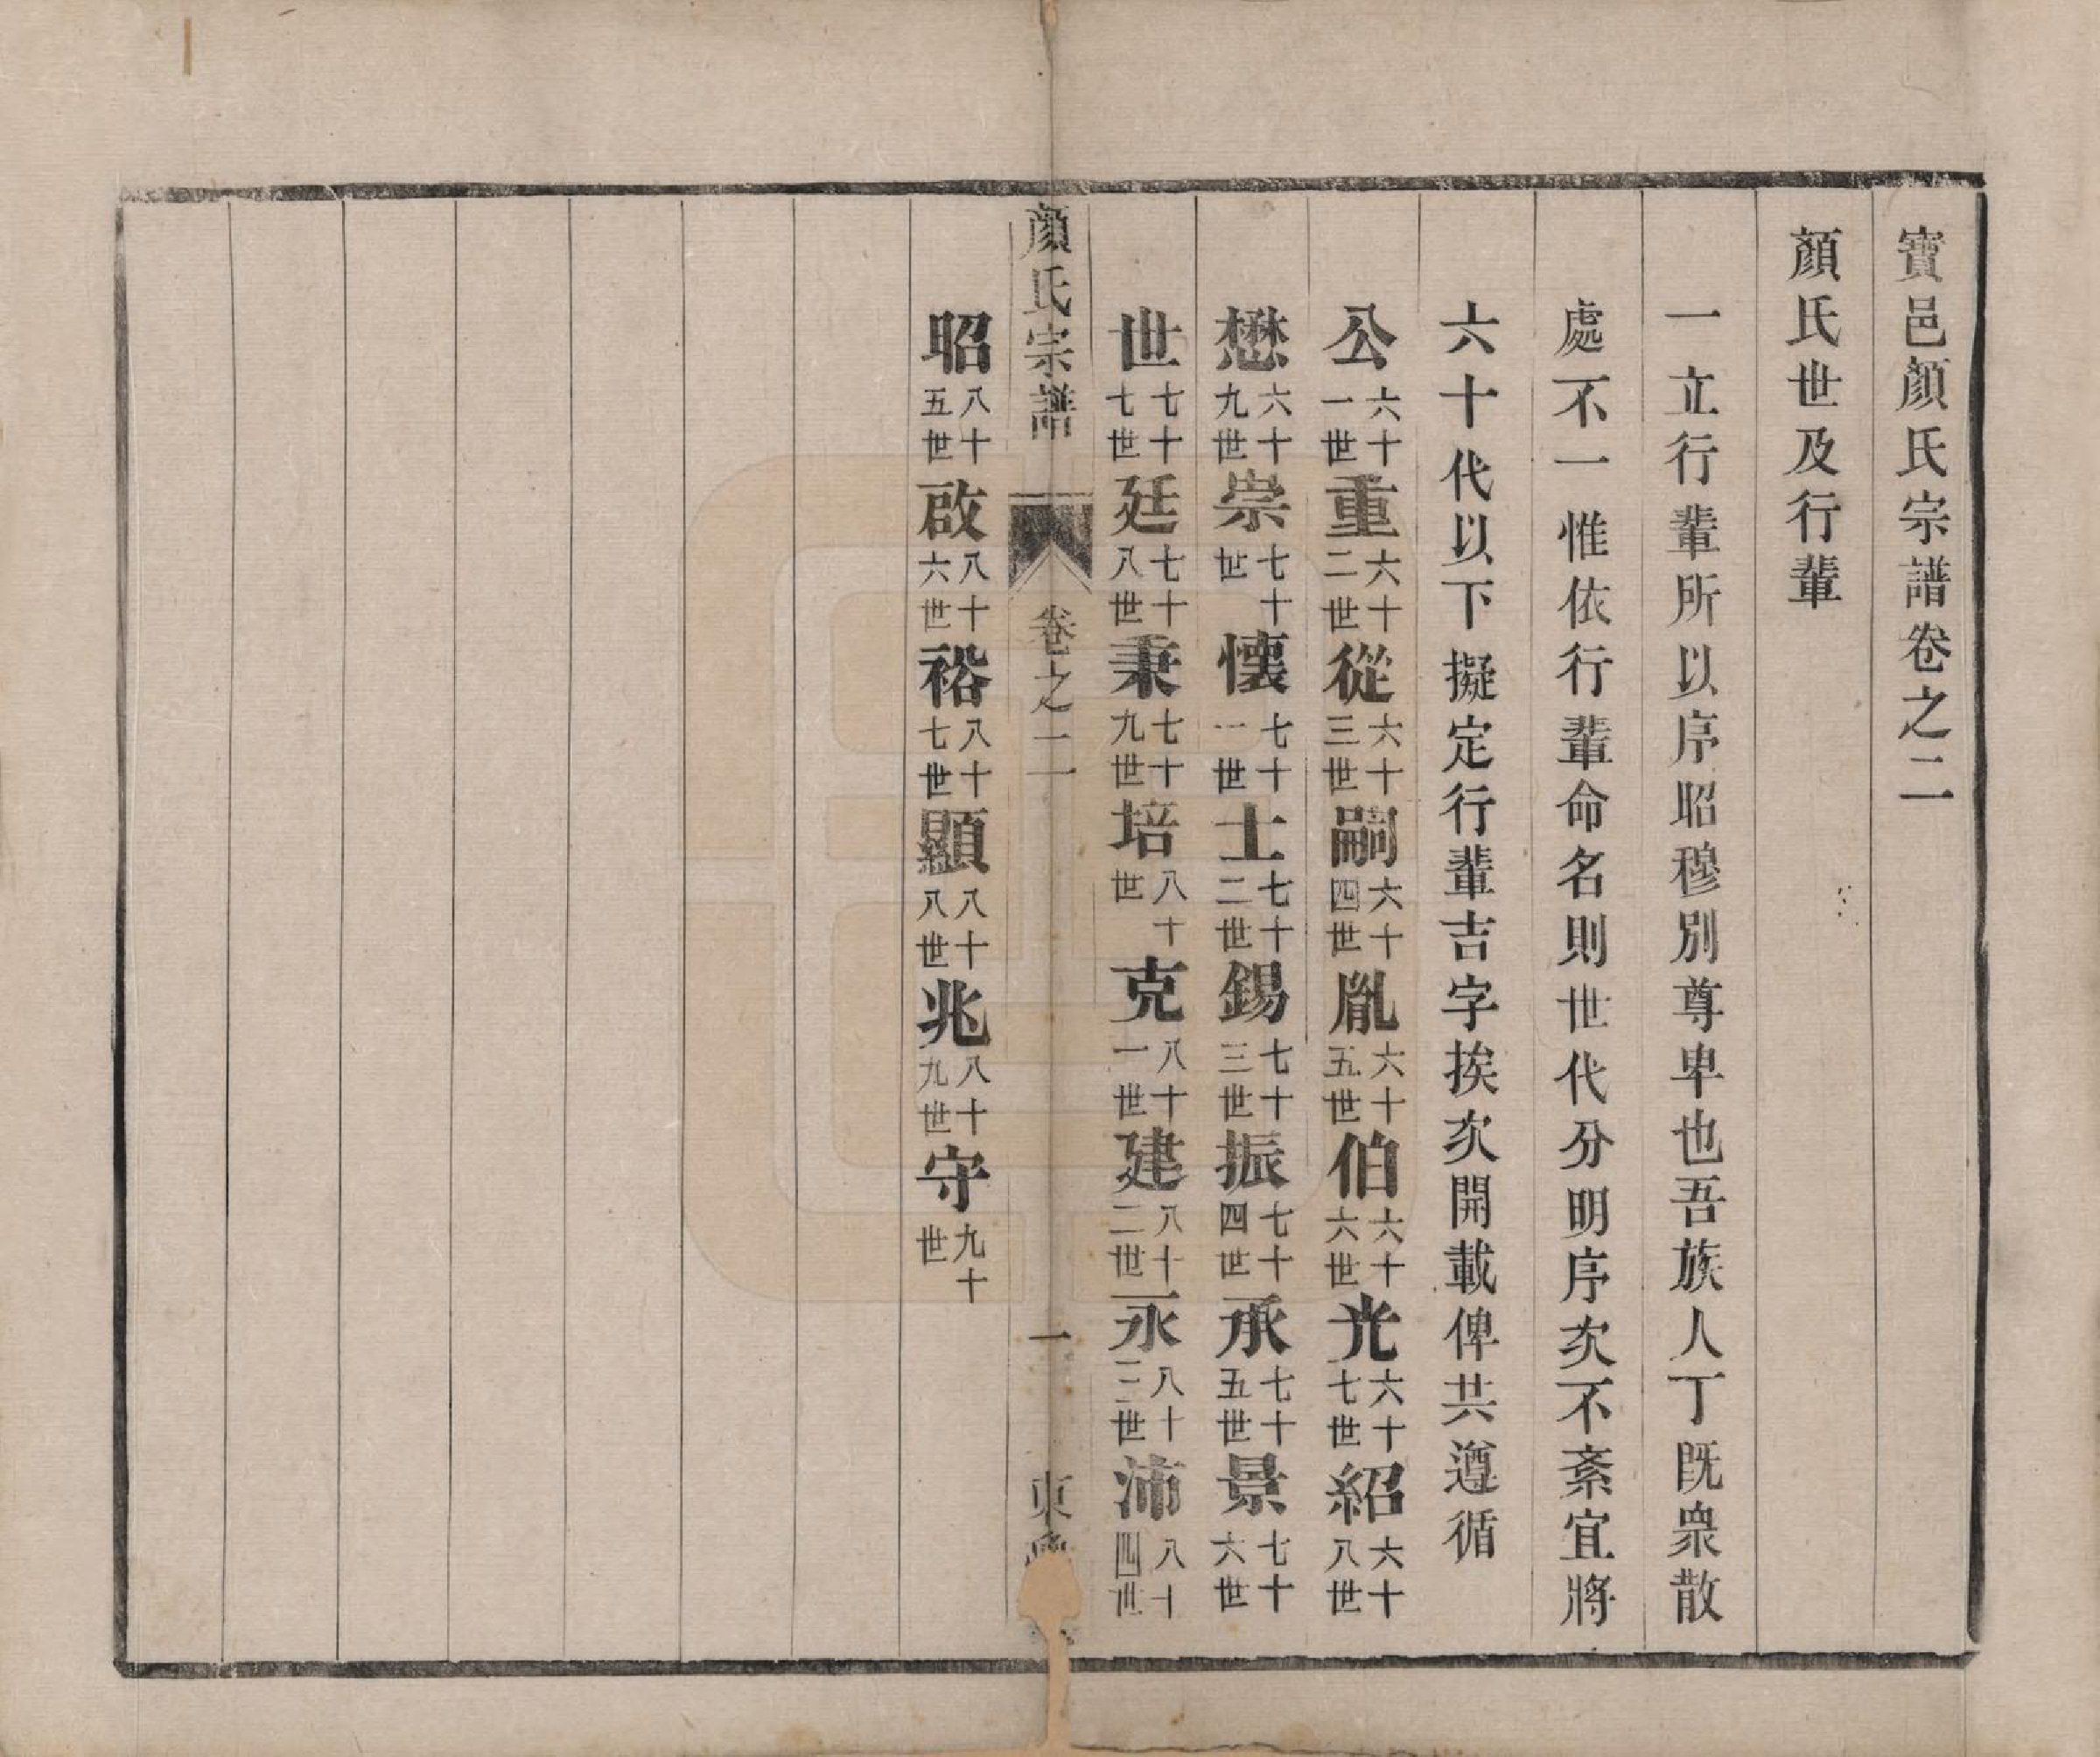 寶邑顏氏宗譜卷之二
顏氏世及行輩
一立行輩所以序昭穆別尊卑也吾族人丁既衆散
處不一惟依行輩命名則世代分明序次不紊宜將
六十代以下擬定行輩吉字挨次開載俾共遵循
公六十一世重六十二世從六十三世嗣六十四世胤六十五世伯六十六世光六十七世紹六十八世
懋六十九世崇七十世懷七十一世士七十二世錫七十三世振七十四世承七十五世景七十六世
世七十七世廷七十八世秉七十九世培八十世克八十一世建八十二世永八十三世沛八十四世
顏氏宗譜 卷之二 一 東
昭八十五世啟八十六世裕八十七世顯八十八世兆八十九世守九十世